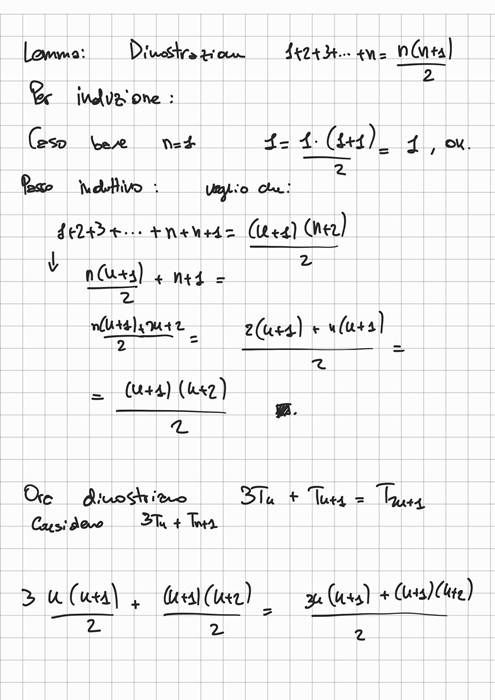 Lemma: Dimostraziam 1+2+3+...+n = n(n+1)/2
Per induzione:
Caso base n=1 1 = 1·(1+1)/2 = 1, ok.
Passo induttivo: voglio che:
1+2+3+...+n+n+1 = (n+1)(n+2)/2
↓
n(n+1)/2 + n+1 =
n(n+1)+2n+2/2 = 2(n+1)+n(n+1)/2 =
= (n+1)(n+2)/2 ■.
Ora dimostriamo 3Tn + Tn+1 = T2n+1
Considero 3Tn + Tn+1
3 n(n+1)/2 + (n+1)(n+2)/2 = 3n(n+1)+(n+1)(n+2)/2